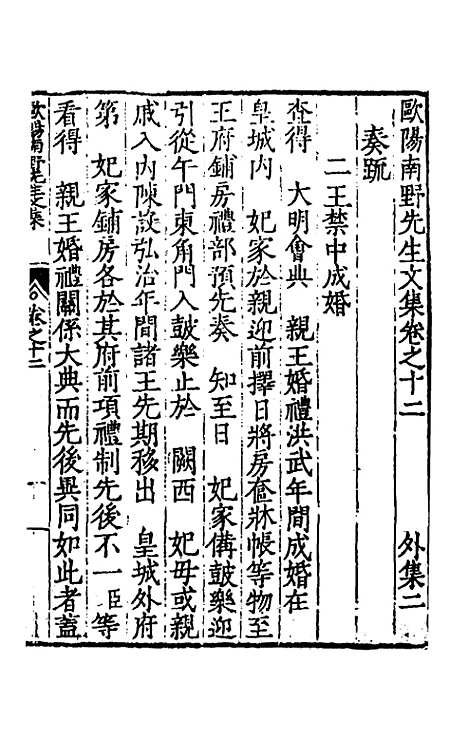 歐陽南野先生文集卷之十二　外集二
奏疏
二王禁中成婚
查得　大明會典　親王婚禮洪武年間成婚在
皇城内　妃家於親迎前擇日將房奩牀帳等物至
王府鋪房禮部預先奏　知至日　妃家僃鼓樂迎
引從午門東角門入鼓樂止於　闕西　妃母或親
戚入内陳設弘治年間諸王先期移出　皇城外府
第　妃家鋪房各於其府前項禮制先後不一臣等
看得　親王婚禮關係大典而先後異同如此者蓋
歐陽南野先生文集　卷之十二　一